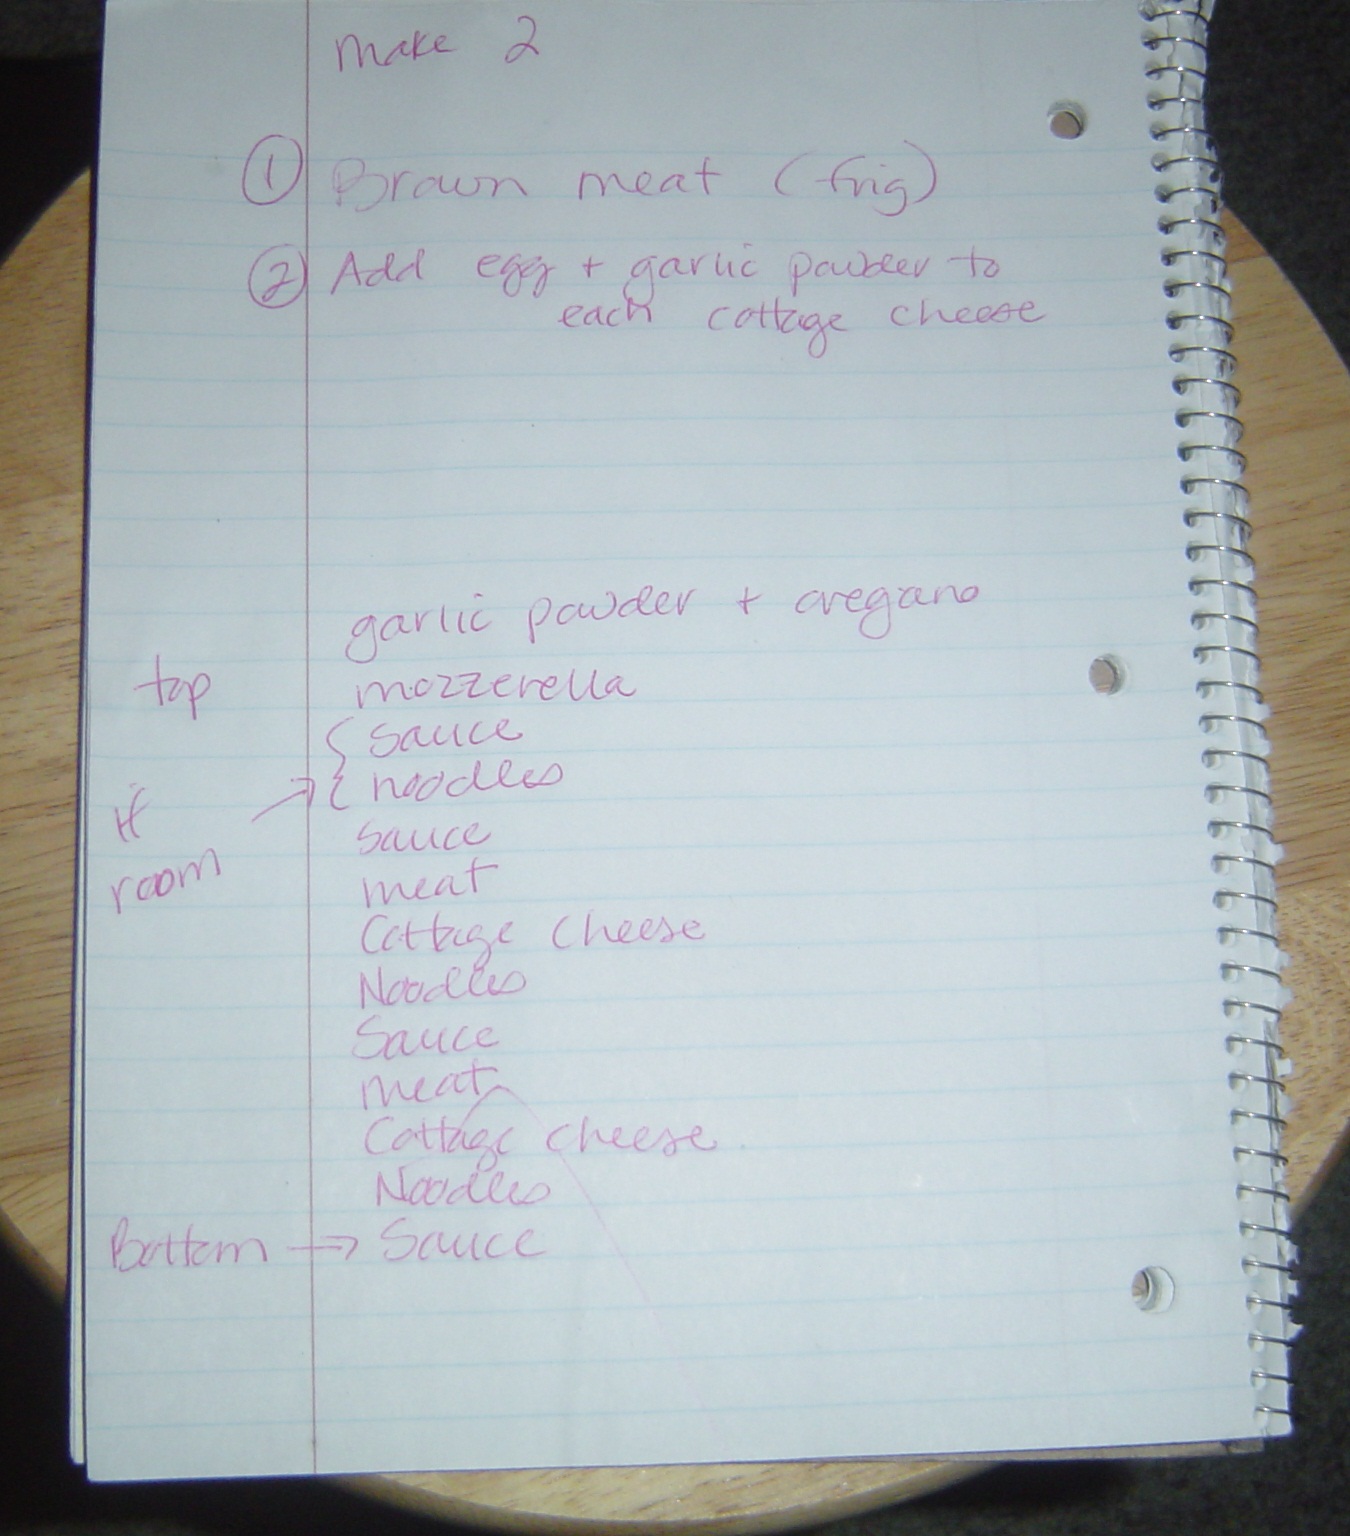 make 2
① Brown meat (frig)
② Add egg + garlic powder to
each cottage cheese
garlic powder + oregano
top mozzerella
sauce
noodles
if → sauce
room meat
Cottage cheese
Noodles
Sauce
meat
Cottage cheese
Noodles
Bottom → Sauce